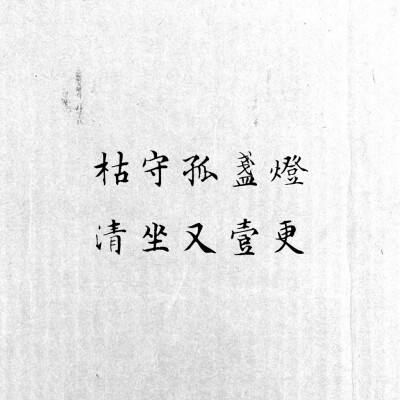 枯守孤盞燈
清坐又壹更